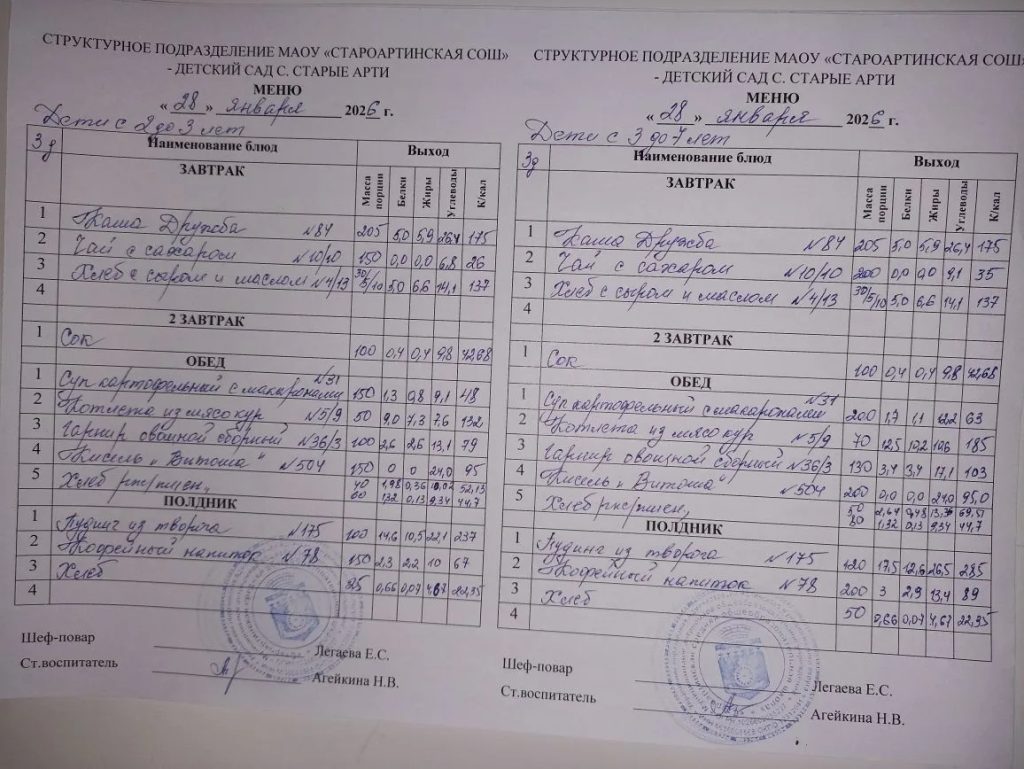 СТРУКТУРНОЕ ПОДРАЗДЕЛЕНИЕ МАОУ «СТАРОАРТИНСКАЯ СОШ»
- ДЕТСКИЙ САД С. СТАРЫЕ АРТИ
МЕНЮ
« 28 » января 2026 г.
Дети с 2 до 3 лет
3д Наименование блюд Выход
ЗАВТРАК Масса порции Белки Жиры Углеводы К/кал
1 Каша Дружба №84 205 5,0 5,9 26,4 175
2 Чай с сахаром №10/10 150 0,0 0,0 6,8 26
3 Хлеб с сыром и маслом №4/13 30/5/10 5,0 6,6 14,1 137
4
2 ЗАВТРАК
1 Сок 100 0,4 0,4 9,8 42,68
ОБЕД
1 Суп картофельный с макаронами №31 150 1,3 0,8 9,1 48
2 Котлета из мяса кур №5/9 50 9,0 7,3 7,6 132
3 Гарнир овощной сборный №36/3 100 2,6 2,6 13,1 79
4 Кисель „Витоша" №504 150 0 0 24,0 95
5 Хлеб рж/пшен, 40 1,98 0,36 10,02 52,13
60 1,32 0,13 9,34 44,7
ПОЛДНИК
1 Пудинг из творога №175 100 14,6 10,5 22,1 237
2 Кофейный напиток №78 150 2,3 2,2 10 67
3 Хлеб 25 0,66 0,07 4,67 22,35
4
Шеф-повар Легаева Е.С.
Ст.воспитатель Агейкина Н.В.
СТРУКТУРНОЕ ПОДРАЗДЕЛЕНИЕ МАОУ «СТАРОАРТИНСКАЯ СОШ»
- ДЕТСКИЙ САД С. СТАРЫЕ АРТИ
МЕНЮ
« 28 » января 2026 г.
Дети с 3 до 7 лет
3д Наименование блюд Выход
ЗАВТРАК Масса порции Белки Жиры Углеводы К/кал
1 Каша Дружба №84 205 5,0 5,9 26,4 175
2 Чай с сахаром №10/10 200 0,0 0,0 9,1 35
3 Хлеб с сыром и маслом №4/13 30/5/10 5,0 6,6 14,1 137
4
2 ЗАВТРАК
1 Сок 100 0,4 0,4 9,8 42,68
ОБЕД
1 Суп картофельный с макаронами №31 200 1,7 1,1 12,2 63
2 Котлета из мяса кур №5/9 70 12,5 10,2 10,6 185
3 Гарнир овощной сборный №36/3 130 3,4 3,4 17,1 103
4 Кисель „Витоша" №504 200 0,0 0,0 24,0 95,0
5 Хлеб рж/пшен, 50 2,64 0,48 69,51
80 1,32 0,13 9,34 44,7
ПОЛДНИК
1 Пудинг из творога №175 120 17,5 12,6 26,5 285
2 Кофейный напиток №78 200 3 2,9 13,4 89
3 Хлеб 50 0,66 0,07 4,67 22,35
4
Шеф-повар Легаева Е.С.
Ст.воспитатель Агейкина Н.В.